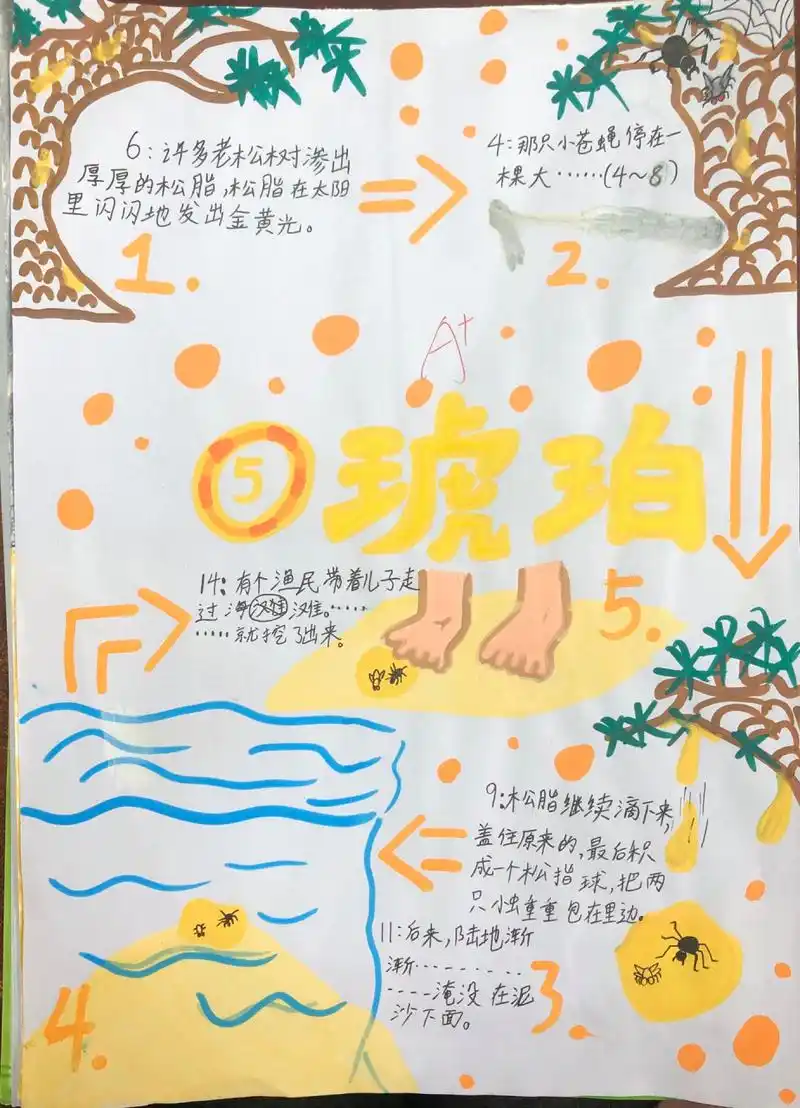 6：许多老松树渗出
厚厚的松脂，松脂在太阳
里闪闪地发出金黄光。
1.
4：那只小苍蝇停在一
棵大……(4~8)
2.
A+
⑤琥珀
14：有个渔民带着儿子走
过海滩。……
……就挖了出来。
5.
9：松脂继续滴下来，
盖住原来的，最后积
成一个松指球，把两
只小虫重重包在里边。
3.
11：后来，陆地渐
渐………
……淹没在泥
沙下面。
4.